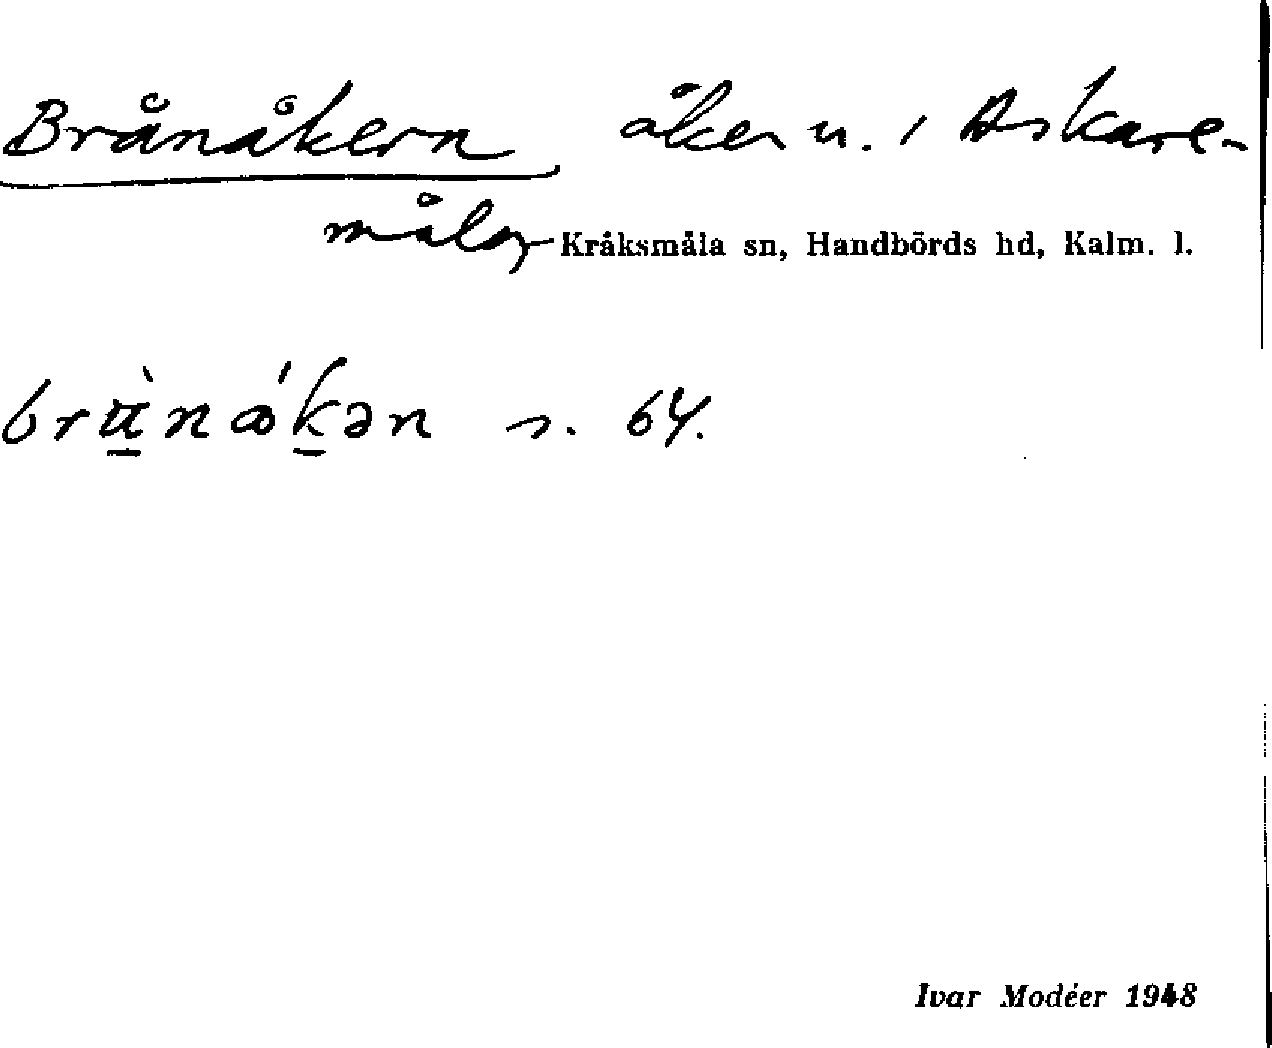 Brånåkern åker n. i Askare-
måla, Kråksmåla sn, Handbörds hd, Kalm. l.
s. 64.
Ivar Modéer 1948